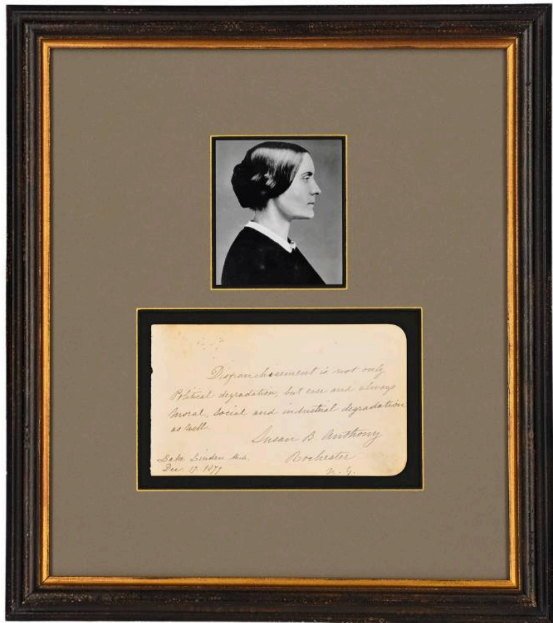 Disfranchisement is not only
Political degradation, but ever and always
Moral, Social and industrial degradation
as well.
Susan B. Anthony
Rochester
N. Y.
Lake Linden Mich.
Dec. 17. 1879